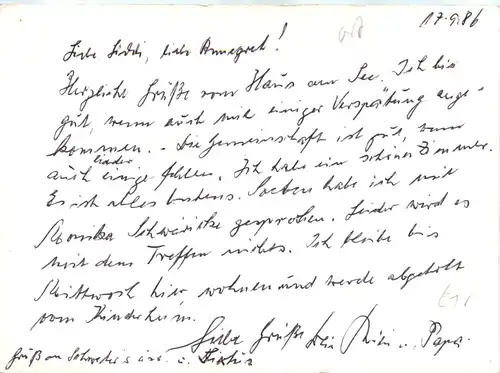 17.9.86
Liebe Siddi, liebe Annegret!
Herzliche Grüße vom Haus am See. Ich bin
gut, wenn auch mit einiger Verspätung ange-
kommen. - Die Gemeinschaft ist gut, wenn
auch leider einige fehlen. Ich habe ein schönes Zimmer.
Es ist alles bestens. Soeben habe ich mit
Monika gesprochen. Leider wird es
mit dem Treffen nichts. Ich bleibe bis
Mittwoch hier wohnen und werde abgeholt
vom Kinderheim.
Liebe Grüße u. Papa
Gruß an Schwester